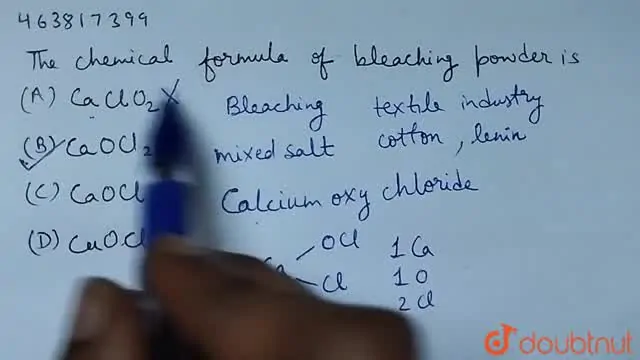 463817399
The chemical formula of bleaching powder is
(A) CaClO2 X Bleaching textile industry
(B) CaOCl2 mixed salt cotton, lenin
(C) CaOCl Calcium oxy chloride
(D) CuOCl
OCl 1 Ca
Cl 1 O
2 Cl
doubtnut